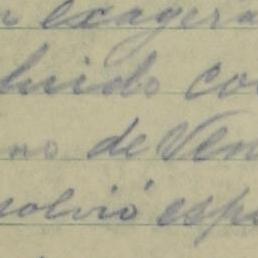 n exagera
luido co
no de Ven
solvió espe